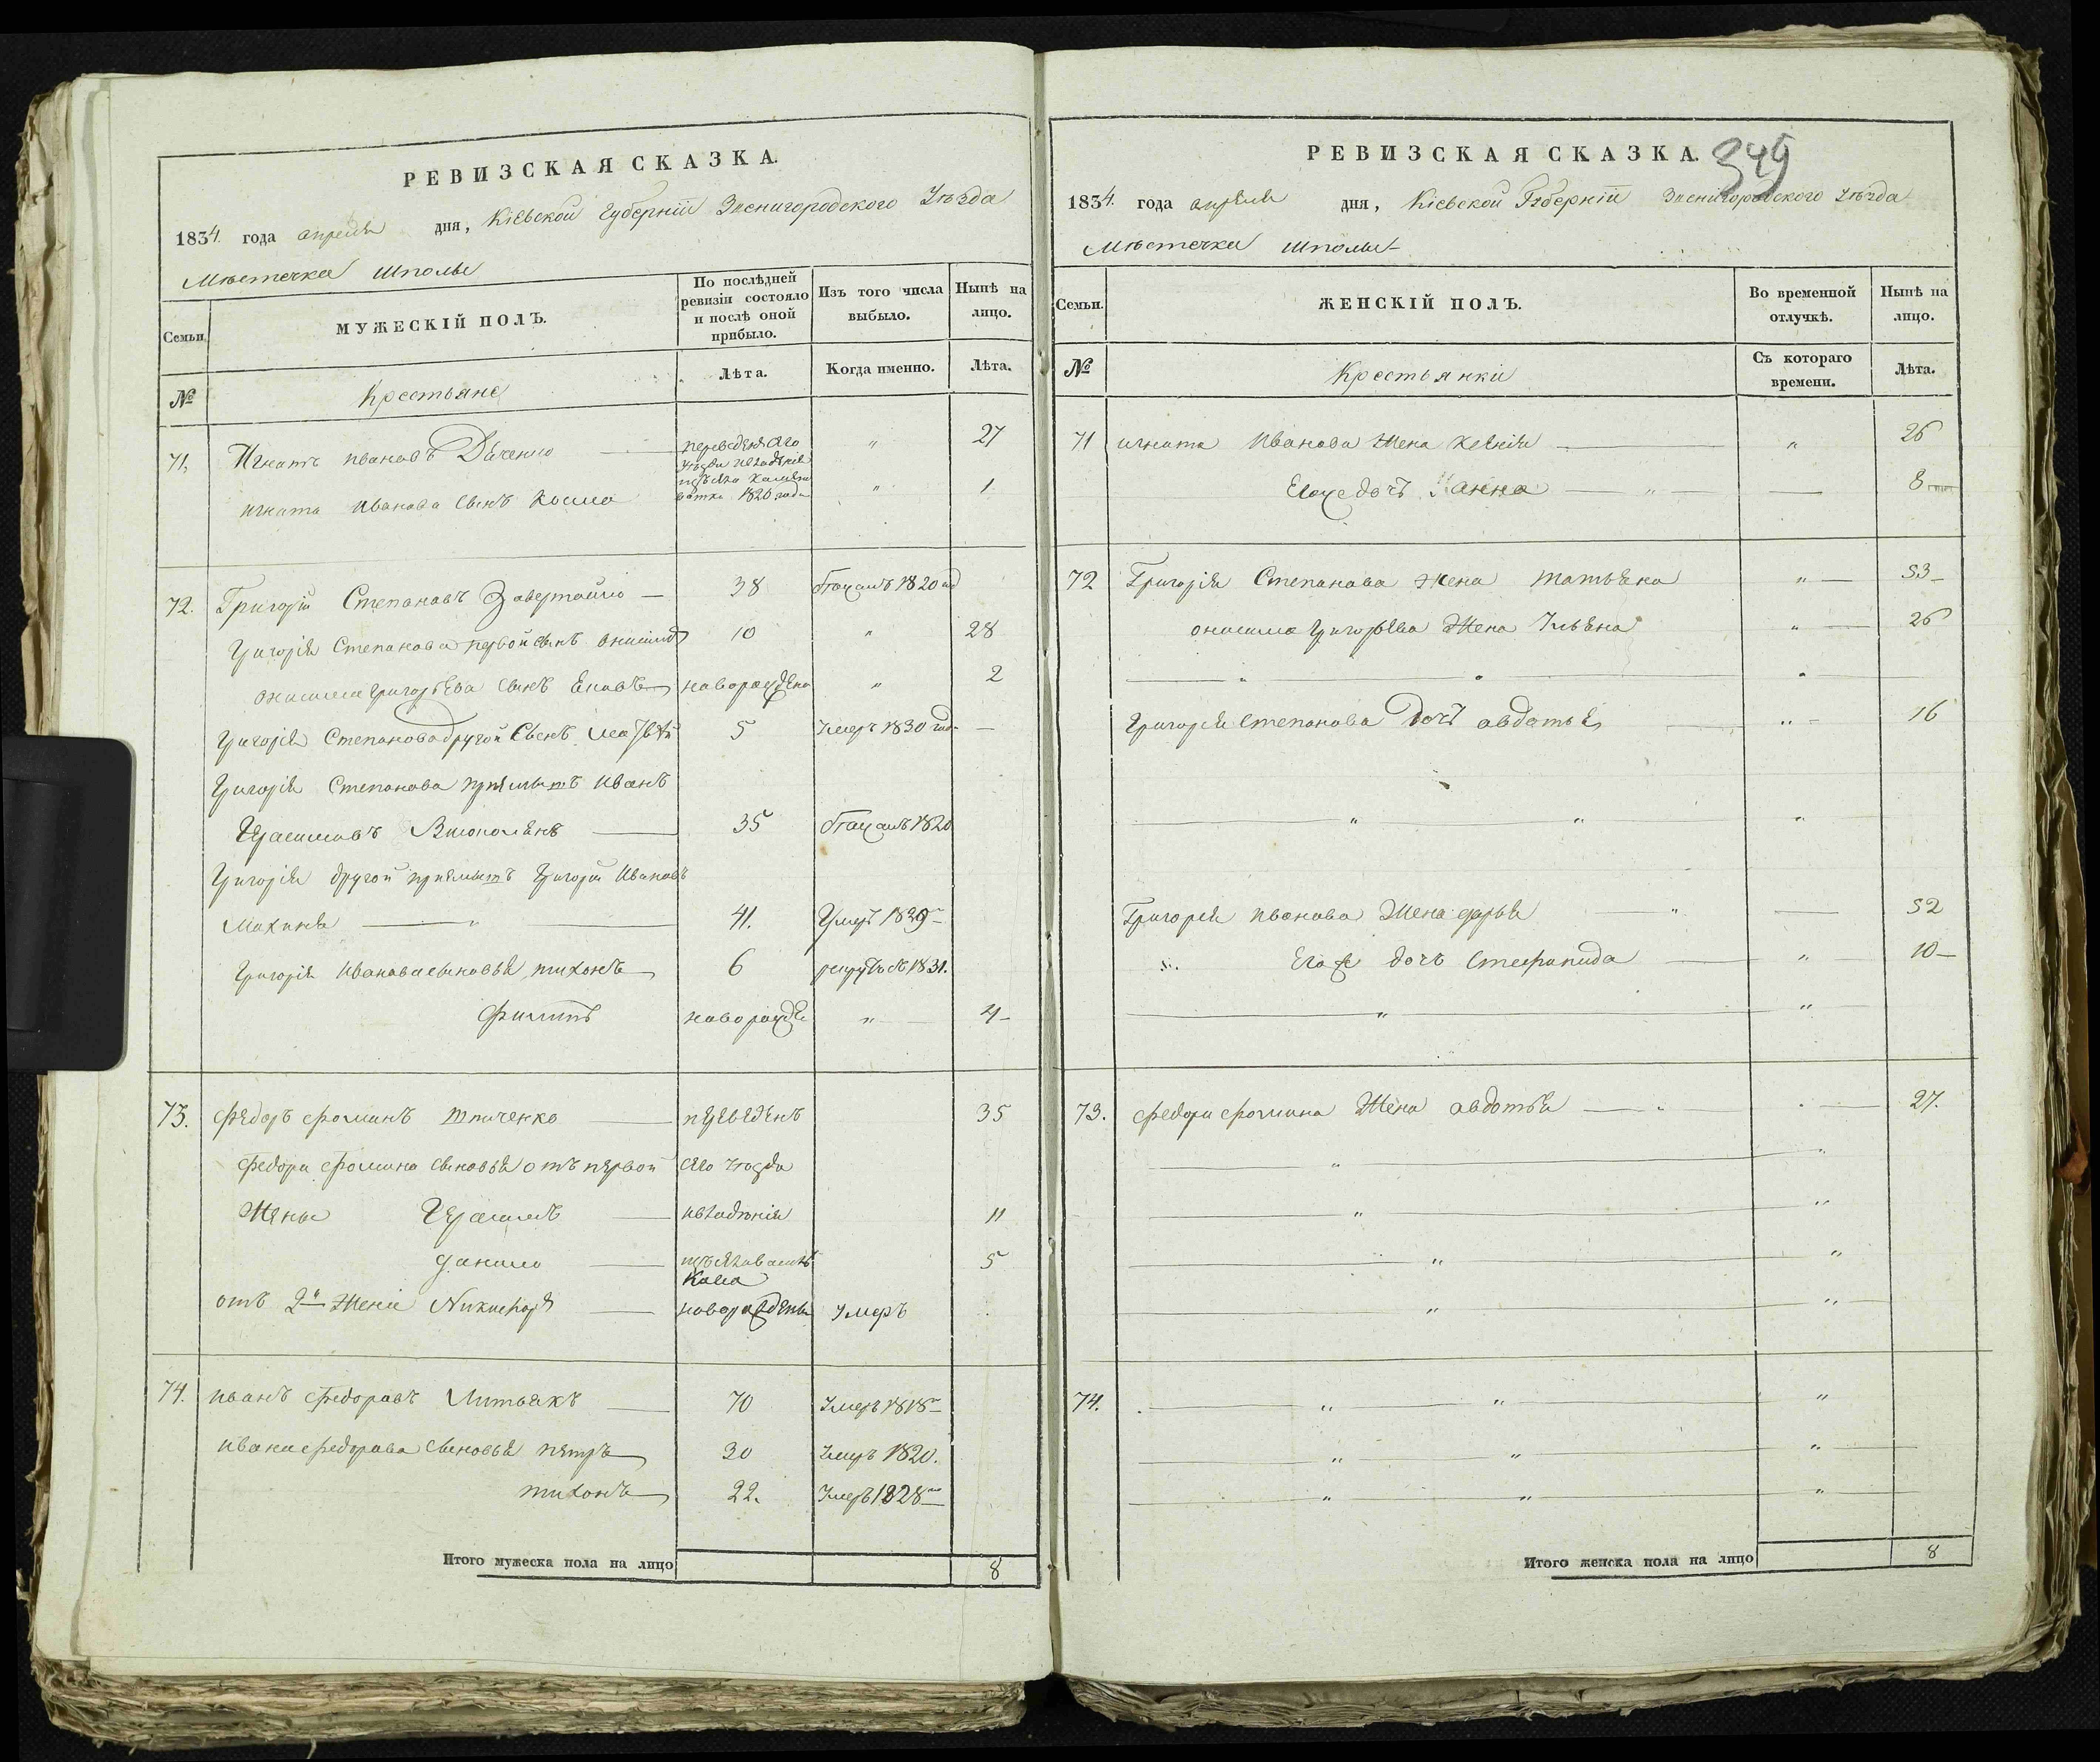 РЕВИЗСКАЯ СКАЗКА.
1834. года апреля дня, Кіевской Губерніи Звенигородского Уѣзда
Мѣстечка Шполы
Семьи.
МУЖЕСКІЙ ПОЛЪ.
По послѣдней ревизіи состояло и послѣ оной прибыло.
Изъ того числа выбыло.
Нынѣ на лицо.
№
Крестьяне
Лѣта.
Когда именно.
Лѣта.
71, Игнатъ Ивановъ — переведен сего " 27
уезда
Игната Иванова сынъ Косма 1826 года " 1
72. Григорій Степановъ Завертайло — 38 1820
Григорія Степанова первой сынъ Онисимъ 10 " 28
Онисима Григорьева сынъ новорожденъ " 2
Григорія Степанова другой сынъ Матвѣй 5 умеръ 1830 года —
Григорія Степанова пріемышъ Иванъ
Герасимовъ 35 1820
Григорія другой пріемышъ Григорій Ивановъ
41. умеръ 1829
Григорія Иванова сыновья Тихонъ 6 1831.
Филипъ новорожде " 4
73. Федоръ Фоминъ Ткаченко переведенъ 35
Федора Фомина сыновья отъ первой сего уезда
жены Герасимъ 11
Данило 5
отъ 2й жены Никифоръ новорожденъ умеръ
74. Иванъ Федоровъ Литвакъ 70 умеръ 1818
Ивана Федорова сыновья Петръ 30 умеръ 1820.
Тихонъ 22. умеръ 1828
Итого мужеска пола на лицо 8
349
РЕВИЗСКАЯ СКАЗКА.
1834. года апреля дня, Кіевской Губерніи Звенигородского Уѣзда
Мѣстечка Шполы
Семьи.
ЖЕНСКІЙ ПОЛЪ.
Во временной отлучкѣ.
Нынѣ на лицо.
№
Крестьянки
Съ котораго времени.
Лѣта.
71 Игната Иванова жена Ксенія " 26
Его же дочъ Ганна " 8
72 Григорія Степанова жена Татьяна " 53
Онисима Григорьева жена Ульяна " 26
Григорія Степанова дочъ Авдотья " 16
Григорія Иванова жена Дарья " 52
Его же дочъ Степанида " 10
73. Федора Фомина жена Авдотья 27.
74.
Итого женска пола на лицо 8